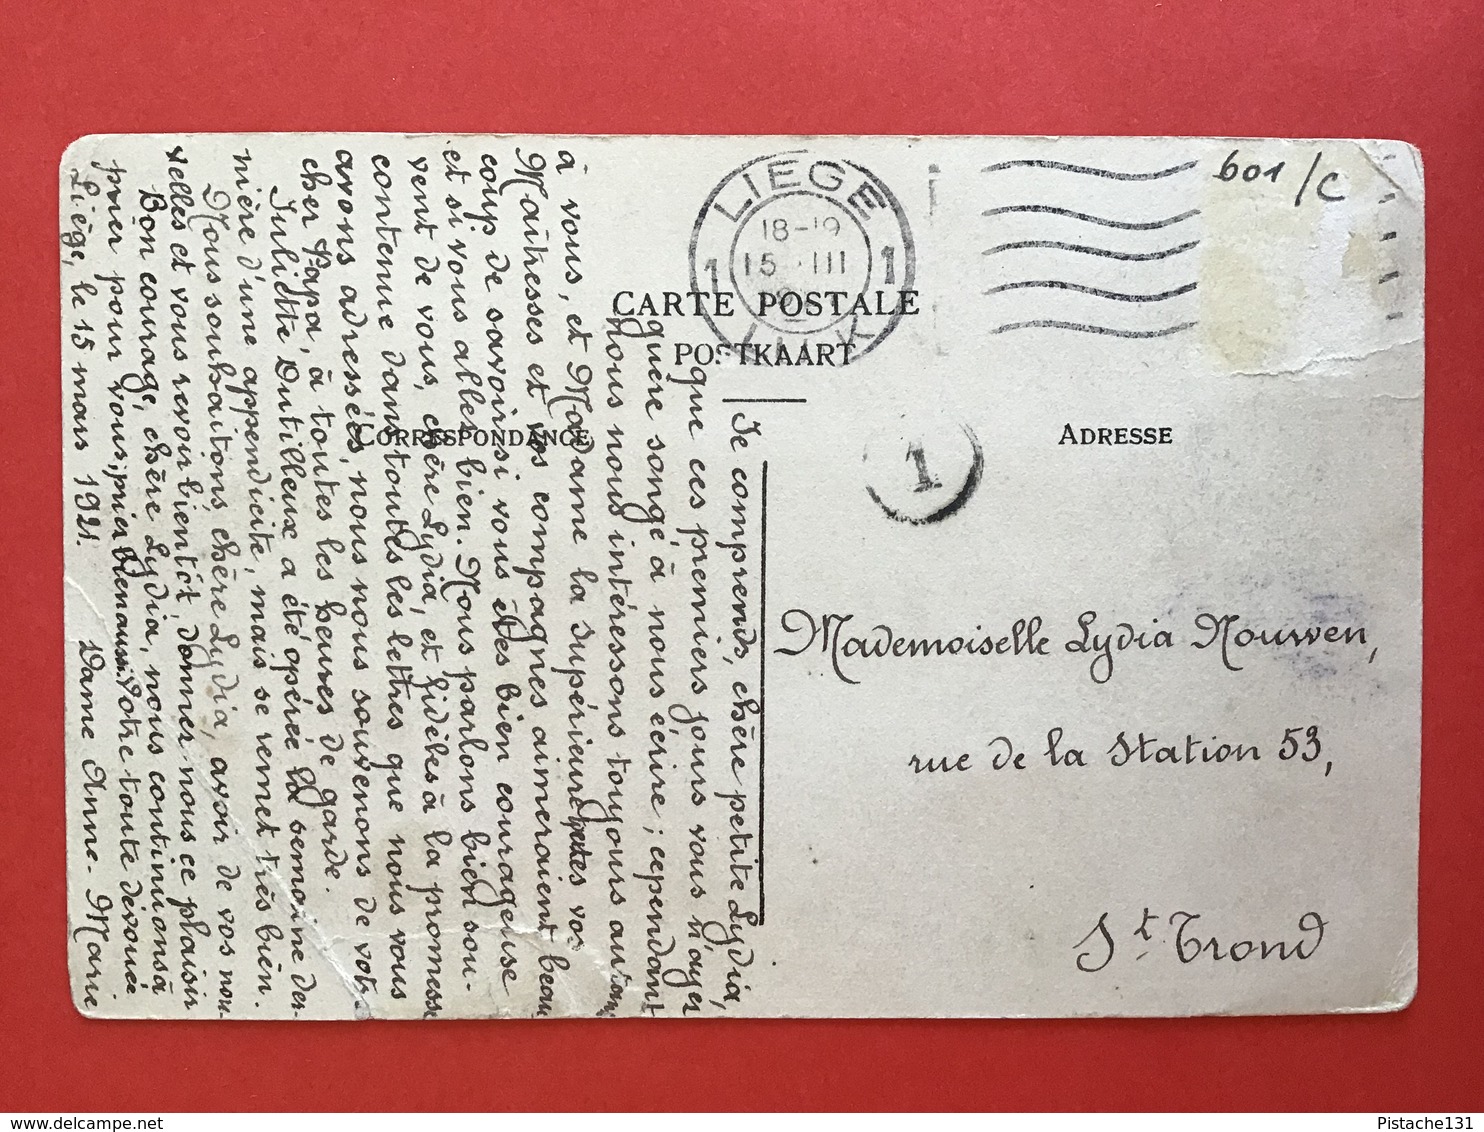 delcampe.net
LIEGE
1 18-19 1
15 III
LUIK
601/C
CARTE POSTALE
POSTKAART
CORRESPONDANCE
ADRESSE
1
Je comprends, chère petite Lydia,
que ces premiers jours vous n'ayez
guère songé à nous écrire; cependant
nous nous intéressons toujours autant
à vous, et Madame la Supérieure, vos
Maîtresses et vos compagnes aimeraient beau-
coup de savoir si vous êtes bien courageuse
et si vous allez bien. Nous parlons bien sou-
vent de vous, chère Lydia, et fidèles à la promesse
contenue dans toutes les lettres que nous vous
avons adressées, nous nous souvenons de votre
cher Papa, à toutes les heures de garde.
Juliette Dutilleux a été opérée la semaine der-
nière d'une appendicite, mais se remet très bien.
Nous souhaitons, chère Lydia, avoir de vos nou-
velles et vous revoir bientôt, donner nous ce plaisir
Bon courage, chère Lydia, nous continuons à
prier pour vous; priez bien aussi. Votre toute dévouée
Liège, le 15 mars 1921. Dame Anne-Marie
Mademoiselle Lydia Nouwen,
rue de la Station 53,
St. Trond
Pistache131